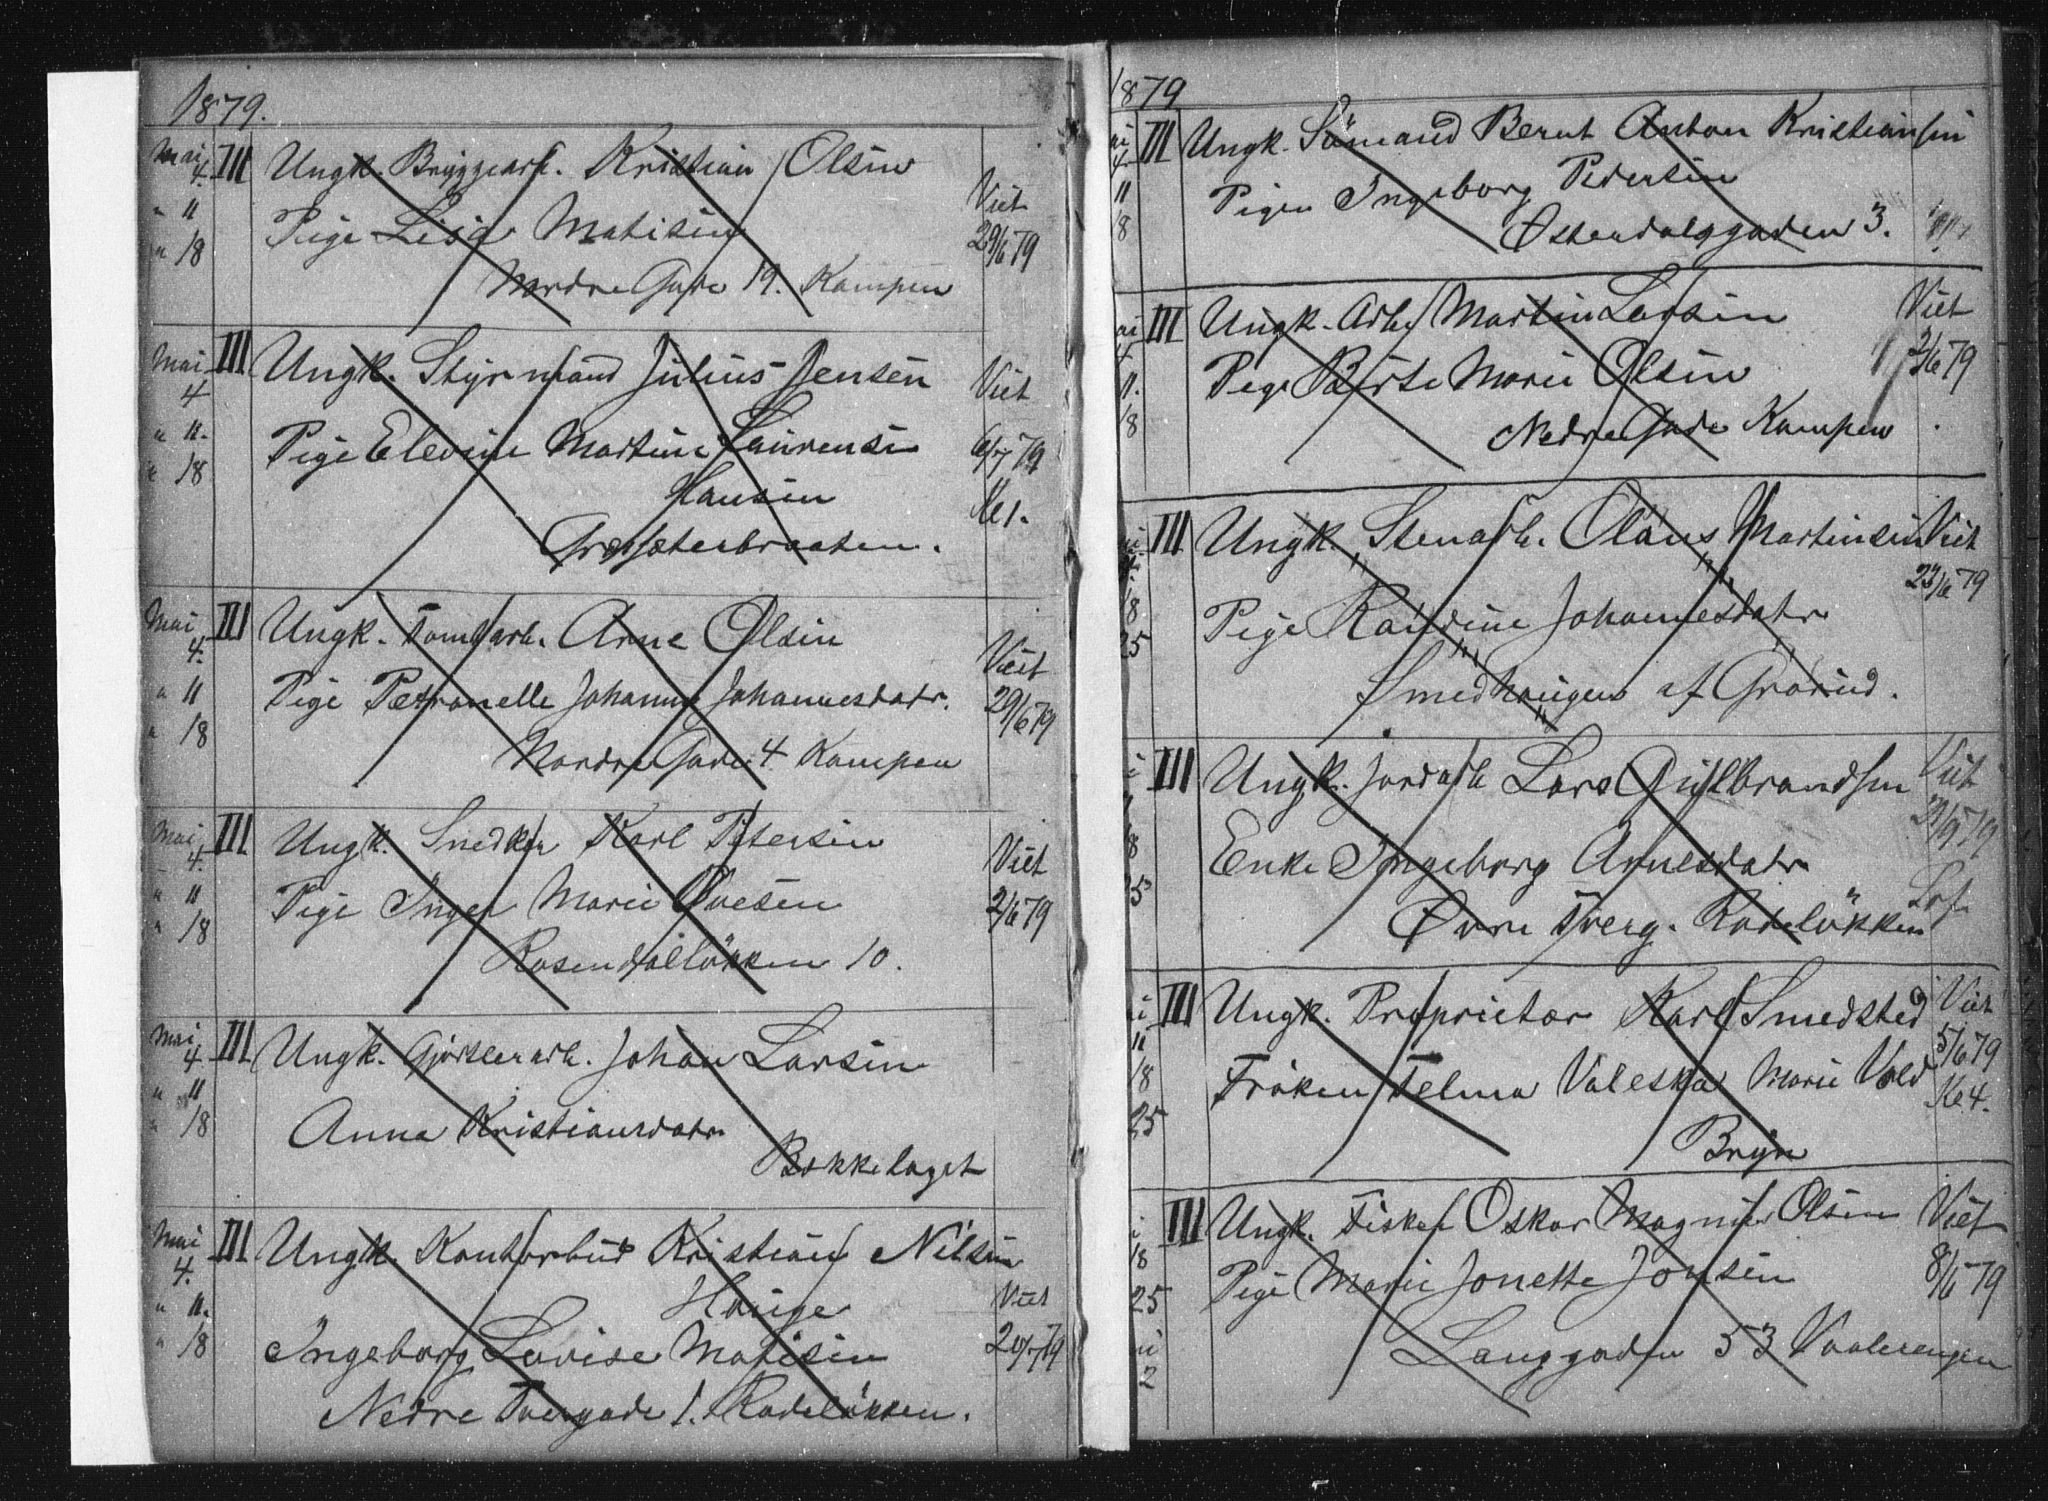 1879.
Mai 4. III Ungk. Bryggearb. Kristian Olsen
" 11 Pige Lisa Matisen Viet 29/6 79
" 18 Nordre Gade 19. Kampen
Mai 4 III Ungk. Styrmand Julius Jensen Viet
" 11. Pige Elevine Martine Laurense 6/7 79
" 18 Hansen Kl 1.
Græsfæterbraaten.
Mai 4. III Ungk. Tomtarb. Arne Olsen Viet
" 11 Pige Petronelle Johanne Johannesdatr. 29/6 79
" 18 Nordre Gade 4 Kampen
Mai 4. III Ungk. Snedker Karl Petersen Viet
" 11 Pige Inger Marie Ovesen 2/6 79
" 18 Rosendalløkken 10.
Mai 4 III Ungk. Gjørtlerarb. Johan Larsen
" 11
" 18 Anna Kristiansdatr
Bækkelaget
Mai 4. III Ungk. Kontorbud Kristian Nilsen
" 11. Hauge Viet
" 18 Ingeborg Lovise Matisen 20/7 79
Nedre Tvergade 1. Rodeløkken.
1879
4 III Ungk. Sömand Bernt Anton Kristiansen
11 Pigen Ingeborg Pedersen
18 Østerdalsgaden 3.
4 III Ungk. Arb. Martin Larsen Viet
11. Pige Birte Marie Olsen 2/6 79
18 Nedre Gade Kampen
III Ungk. Stenarb. Olaus Martinsen Viet
18 Pige Randine Johannesdatr 23/6 79
25 Smedhaugen af Grorud.
III Ungk. Jordarb Lars Gulbrandsen Viet
18 Enke Ingeborg Arnesdatr /9 79
25 Øvre Tverg. Rodeløkken
III Ungk. Proprietær Karl Smedsted Viet
11
18 Frøken Telma Valeska Marie Vold 5/6 79
25 Bryn Kl 4.
III Ungk. Fisker Oskar Magnus Olsen Viet
18
25 Pige Marie Jonette Jonsen 8/6 79
2 Langgaden 53 Vaalerengen